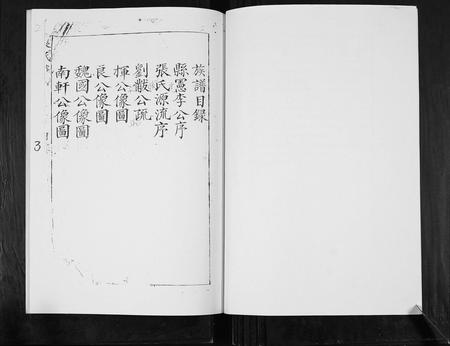 族譜目錄
縣憲李公序
張氏源流序
劉戩公疏
揮公像圖
良公像圖
魏國公像圖
南軒公像圖
3